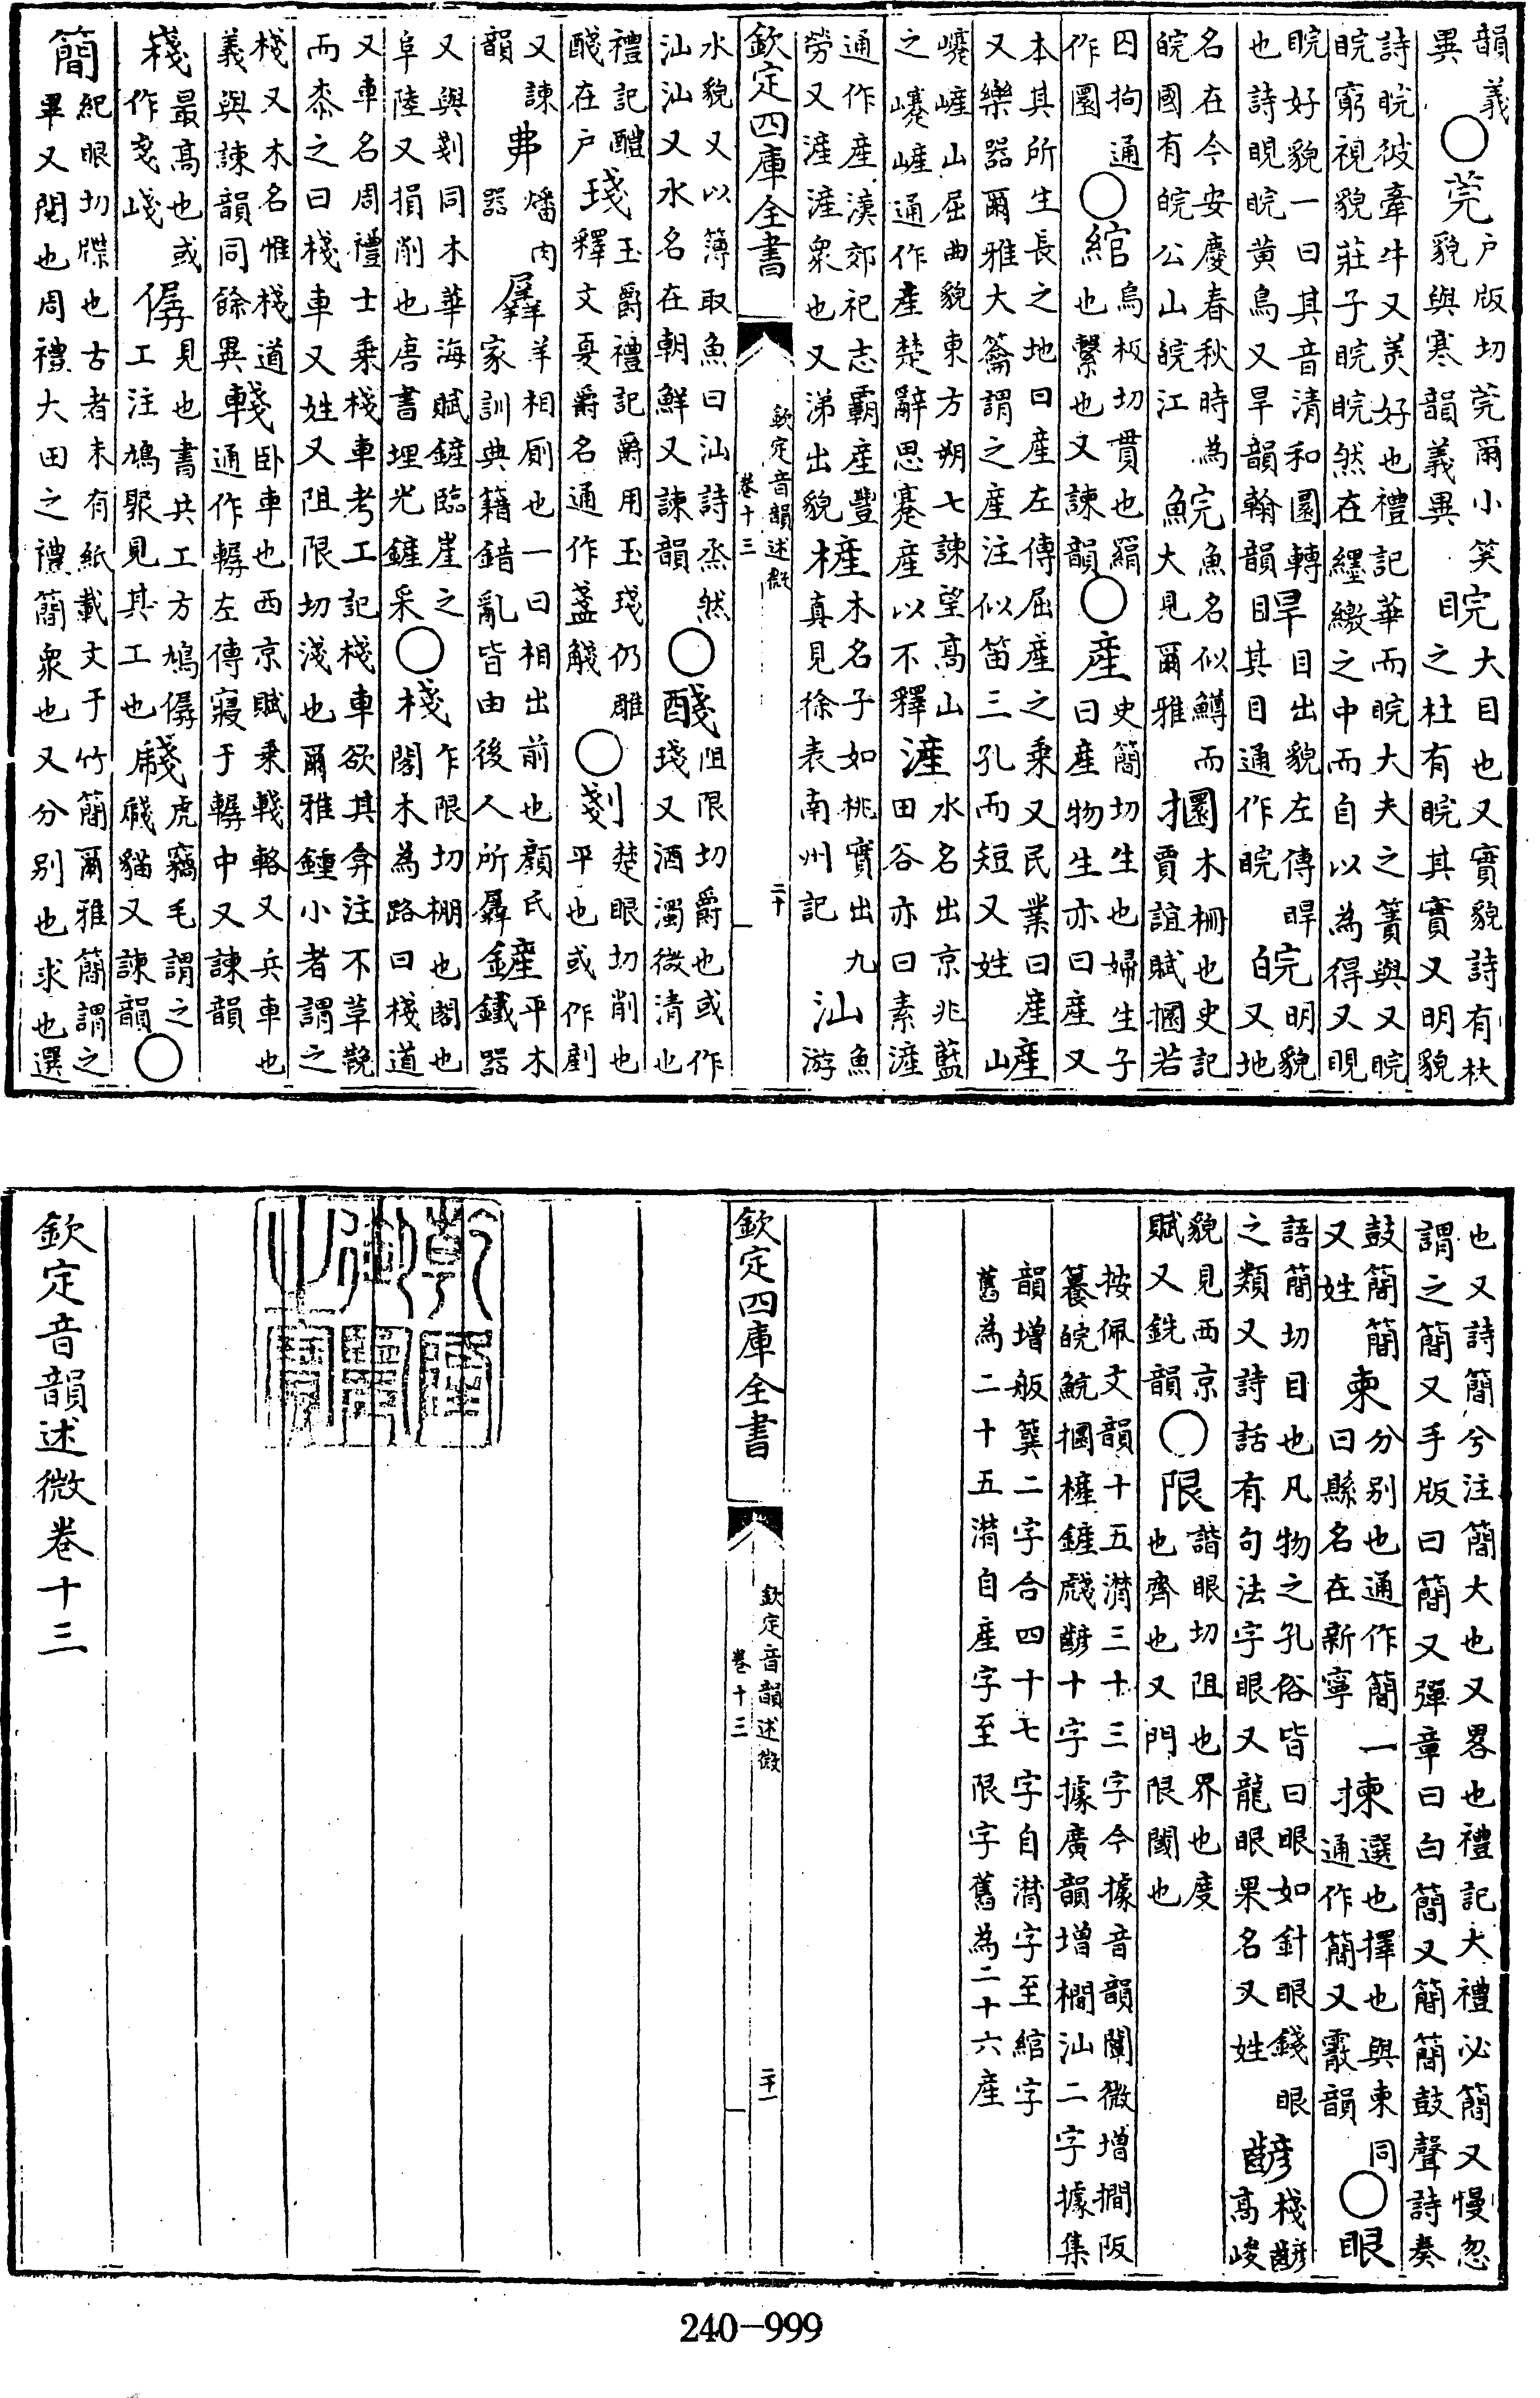 韻義異○莞戶版切莞爾小笑貌與寒韻義異睆大目也又實貌詩有杕之杜有睆其實又明貌
詩睆彼牽牛又美好也禮記華而睆大夫之簀與又睆睆窮視貌莊子睆睆然在纆繳之中而自以為得又睍
睆好貌一曰其音清和圜轉也詩睍睆黃鳥又旱韻翰韻睅目出貌左傳睅其目目通作睆皖明貌又地
名在今安慶春秋時為皖國有皖公山皖江鯇魚名似鱒而大見爾雅攌木柵也史記賈誼賦攌若
囚拘通作圜○綰烏板切貫也絹也繫也又諫韻○產史簡切生也婦生子曰產產物生亦曰產又
本其所生長之地曰產左傳屈產之乘又民業曰產又樂器爾雅大籥謂之產注似笛三孔而短又姓嵼
㠌嵼山屈曲貌東方朔七諫望高山之㠌嵼通作產楚辭思蹇產以不釋滻水名出京兆藍田谷亦曰素滻
通作產漢郊祀志霸產豐勞又滻滻衆也又涕出貌㯆木名子如桃實出九真見徐表南州記汕魚游
欽定四庫全書
欽定音韻述微
卷十三
二十
水貌又以簿取魚曰汕詩烝然汕汕又水名在朝鮮又諫韻○醆阻限切爵也或作琖又酒濁微清也
禮記醴醆在戶琖玉爵禮記爵用玉琖仍雕釋文戛爵名通作盞觴○剗楚眼切削也平也或作剷
又諫韻丳燔肉器羼羊相厠也一曰相出前也顏氏家訓典籍錯亂皆由後人所羼鏟平木鐵器
又與剗同木華海賦鏟臨崖之阜陸又損削也唐書埋光鏟采○棧乍限切棚也閣也閣木為路曰棧道
又車名周禮士乘棧車考工記棧車欲其弇注不革鞔而桼之曰棧車又姓又阻限切淺也爾雅鍾小者謂之
棧又木名惟棧道義與諫韻同餘異輚臥車也西京賦乘輚輅又兵車也通作轏左傳寢于轏中又諫韻
嶘最高也或作僝見也書共工方鳩僝工注鳩聚見其工也虥虎竊毛謂之虥貓又諫韻○
簡紀眼切牒也古者未有紙載文于竹簡爾雅簡謂之畢又閱也周禮大田之禮簡衆也又分別也求也選
也又詩簡兮注簡大也又畧也禮記大禮必簡又慢忽謂之簡又手版曰簡又彈章曰白簡又簡簡鼓聲詩奏
鼓簡簡又姓柬分別也通作簡一曰縣名在新寧揀選也擇也與柬同通作簡又霰韻○眼
語簡切目也凡物之孔俗皆曰眼如針眼錢眼之類又詩話有句法字眼又龍眼果名又姓齴棧齴高峻
貌見西京賦又銑韻○限諧眼切阻也界也度也齊也又門限閾也
按佩文韻十五潸三十三字今據音韻闡微增撊阪䉵皖鯇攌㯆鏟虥齴十字據廣韻增橺汕二字據集
韻增舨䉋二字合四十七字自潸字至綰字舊為二十五潸自產字至限字舊為二十六產
欽定四庫全書
欽定音韻述微
卷十三
二十一
乾隆御覽之寶
欽定音韻述微卷十三
240-999